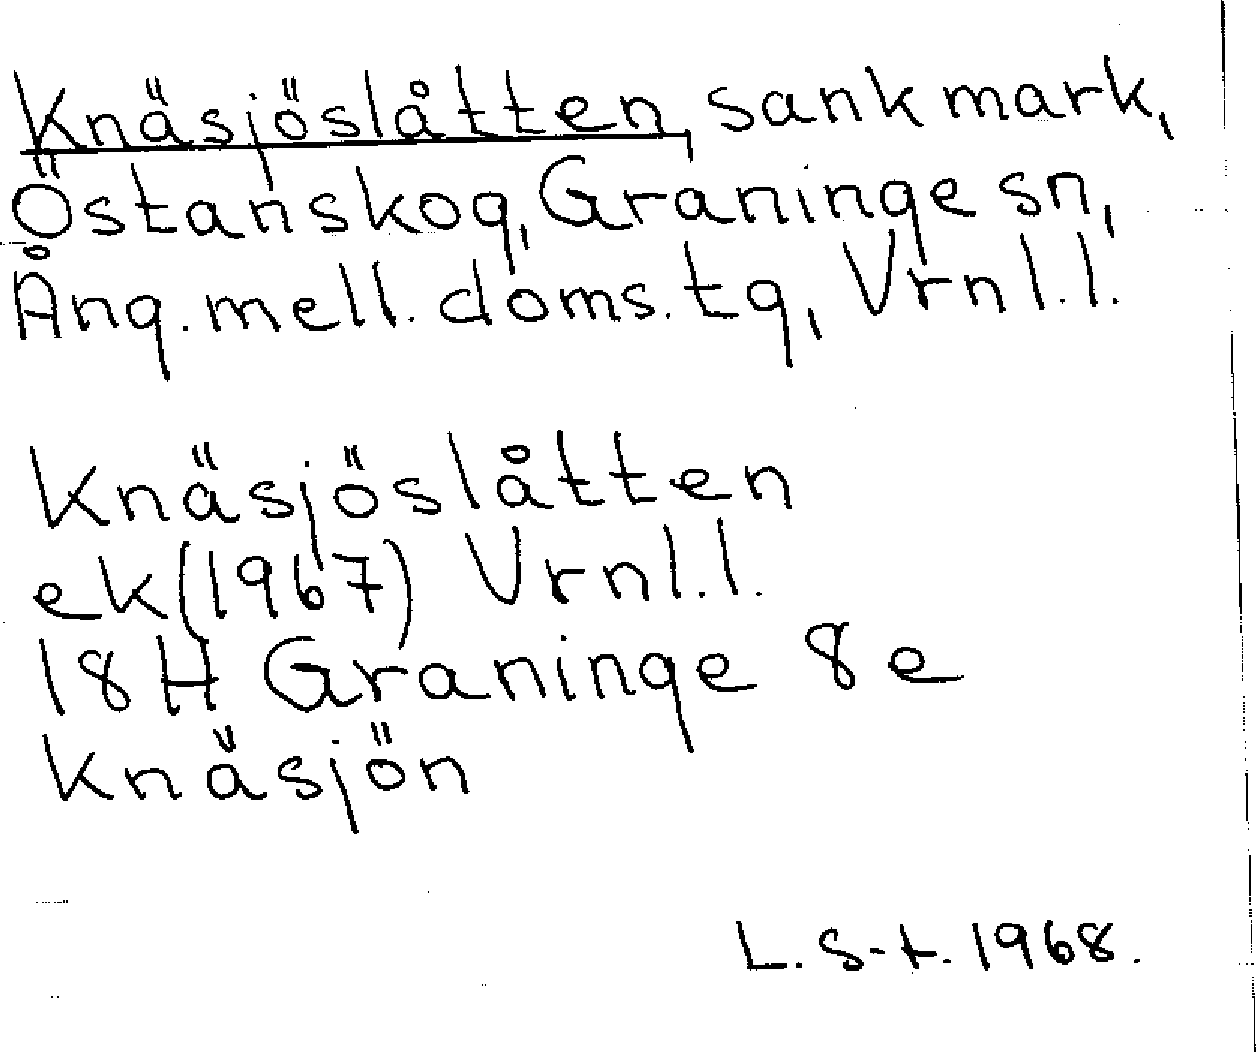 Knäsjöslåtten, sankmark,
Östanskog, Graninge sn,
Ång. mell. doms. tg, Vrnl.l.
Knäsjöslåtten
ek(1967) Vrnl.l.
18H Graninge 8e
Knäsjön
L. S-t. 1968.